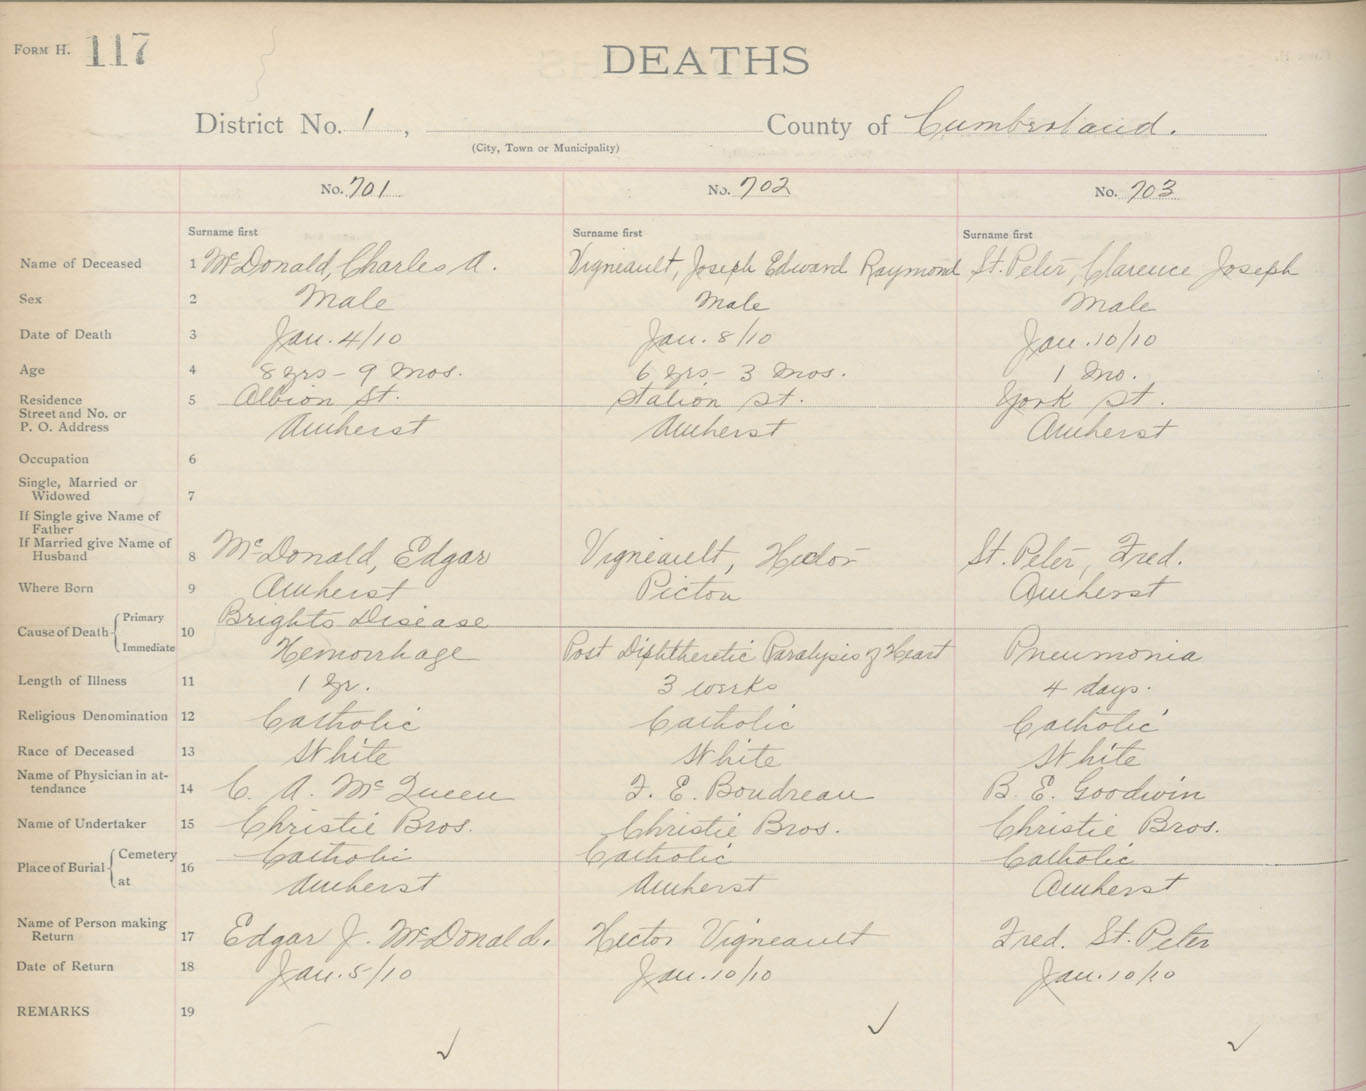 FORM H. 117
DEATHS
District No. 1, County of Cumberland.
(City, Town or Municipality)
No. 701 No. 702 No. 703
Surname first Surname first Surname first
Name of Deceased 1 McDonald, Charles A. Vigneault, Joseph Edward Raymond St. Peter, Clarence Joseph
Sex 2 Male Male Male
Date of Death 3 Jan. 4/10 Jan. 8/10 Jan. 10/10
Age 4 8 yrs - 9 mos. 6 yrs - 3 mos. 1 mo.
Residence 5 Albion St. Station St. York St.
Street and No. or
P. O. Address Amherst Amherst Amherst
Occupation 6
Single, Married or
Widowed 7
If Single give Name of
Father
If Married give Name of
Husband 8 McDonald, Edgar Vigneault, Hector St. Peter, Fred.
Where Born 9 Amherst Pictou Amherst
Cause of Death Primary 10 Brights Disease
Immediate Hemorrhage Post Diphtheretic Paralysis of Heart Pneumonia
Length of Illness 11 1 yr. 3 weeks 4 days.
Religious Denomination 12 Catholic Catholic Catholic
Race of Deceased 13 White White White
Name of Physician in at-
tendance 14 C. A. McQueen F. E. Boudreau B. E. Goodwin
Name of Undertaker 15 Christie Bros. Christie Bros. Christie Bros.
Place of Burial Cemetery 16 Catholic Catholic Catholic
at Amherst Amherst Amherst
Name of Person making
Return 17 Edgar J. McDonald. Hector Vigneault Fred. St. Peter
Date of Return 18 Jan. 5/10 Jan. 10/10 Jan. 10/10
REMARKS 19